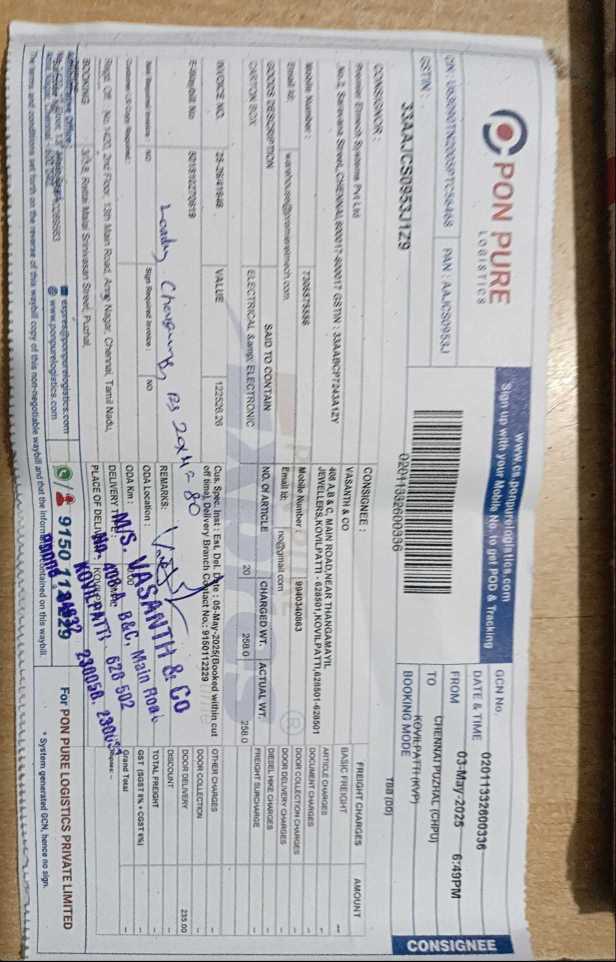 PON PURE
LOGISTICS
www.cs.ponpurelogistics.com
Sign up with your Mobile No. to get POD & Tracking
PAN : AAJCS0953J
GSTIN :
33AAJCS0953J1Z9
02011332600336
GCN No.
02011332600336
DATE & TIME
03-May-2025 6:49PM
FROM
CHENNAI PUZHAL (CHPU)
TO
KOVILPATTI (KVP)
BOOKING MODE
TBB (DD)
CONSIGNEE
CONSIGNOR :
Premier Elmech Systems Pvt Ltd
No.2, Saravana Street, CHENNAI, 600017-600017 GSTIN : 33AABCP7243A1ZY
Mobile Number :
7305875556
Email Id:
warehouse@premierelmech.com
CONSIGNEE :
VASANTH & CO
408 A,B & C, MAIN ROAD,NEAR THANGAMAYIL
JEWELLERS,KOVILPATTI - 628501,KOVILPATTI,628501-628501
Mobile Number :
9940340883
Email Id:
no@gmail.com
GOODS DESCRIPTION
SAID TO CONTAIN
NO. Of ARTICLE
CHARGED WT.
ACTUAL WT.
CARTON BOX
ELECTRICAL &amp; ELECTRONIC
20
258.0
258.0
INVOICE NO.
25-26/41648
VALUE
122526.26
E-Waybill No
Cus. Spec. Inst : Est. Del. Date : 05-May-2025(Booked within cut
off time), Delivery Branch Contact No.: 9150112229
REMARKS:
Loading Charges Rs 20x4=80
Ack Required Invoice : NO
Sign Required Invoice : NO
Customer US Copy Required:
ODA Location :
ODA Km :
0.00
DELIVERY TYPE :
PLACE OF DELIVERY : KOVILPATTI
M/S. VASANTH & CO
No. 408A, B&C, Main Road
KOVILPATTI - 628 502
230058,
FREIGHT CHARGES
AMOUNT
BASIC FREIGHT
ARTICLE CHARGES
DOCUMENT CHARGES
DOOR COLLECTION CHARGES
DOOR DELIVERY CHARGES
DIESEL HIKE CHARGES
FREIGHT SURCHARGE
OTHER CHARGES
DOOR COLLECTION
DOOR DELIVERY
235.00
DISCOUNT
TOTAL FREIGHT
GST (SGST 6% + CGST 6%)
Grand Total
Regd. Off : No. 1420, 2nd Floor, 13th Main Road, Anna Nagar, Chennai, Tamil Nadu,
BOOKING
3/3,8, Rettai Malai Srinivasan Street, Puzhal,
express@ponpurelogistics.com
www.ponpurelogistics.com
9150 112229
For PON PURE LOGISTICS PRIVATE LIMITED
The terms and conditions set forth on the reverse of this waybill copy of this non-negotiable waybill and that the information contained on this waybill
* System generated GCN, hence no sign.